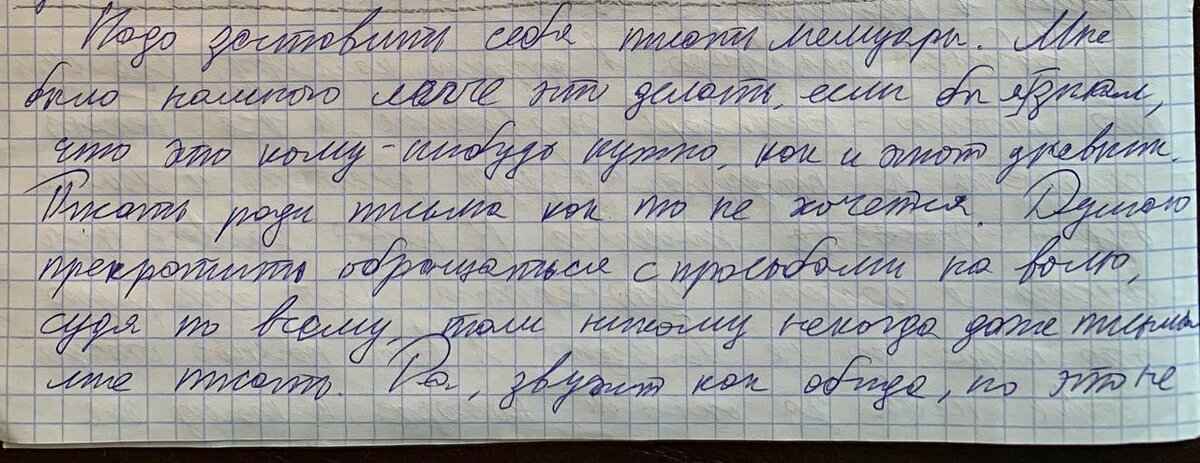 Надо заставить себя писать мемуары. Мне
было намного легче это делать, если бы я знал,
что это кому-нибудь нужно, как и этот дневник.
Писать ради письма как то не хочется. Думаю
прекратить обращаться с просьбами на волю,
судя по всему, там никому некогда даже письма
мне писать. Да, звучит как обида, но это не